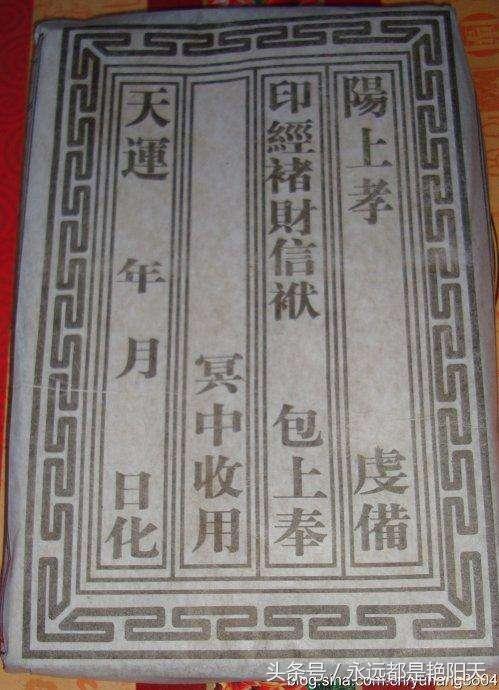 陽上孝 虔備
印經褚財信袱 包上奉
冥中收用
天運 年 月 日化
头条号 / 永远都是艳阳天
blog.sina.com.cn/yuhang3604